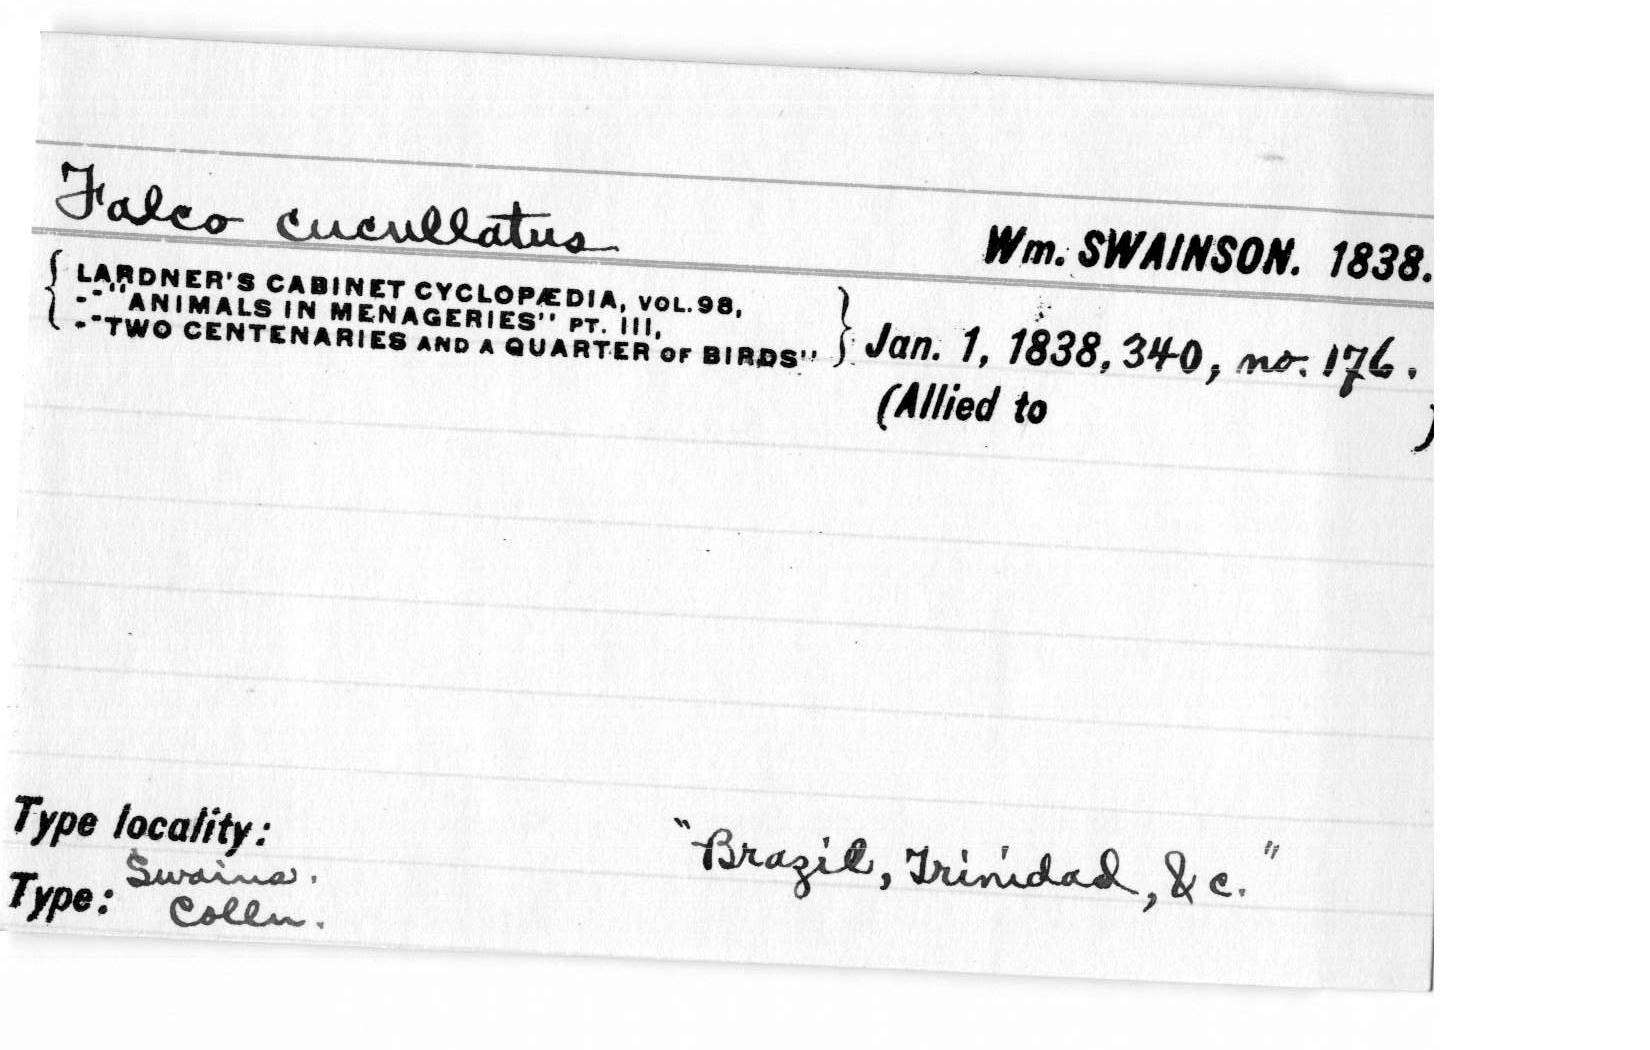 Falco cucullatus
Wm. SWAINSON. 1838.
{ LARDNER'S CABINET CYCLOPÆDIA, VOL. 98,
-- "ANIMALS IN MENAGERIES" PT. III,
-- "TWO CENTENARIES AND A QUARTER OF BIRDS" }
Jan. 1, 1838, 340, no. 176.
(Allied to )
Type locality:
"Brazil, Trinidad, &c."
Type: Swains.
Colln.